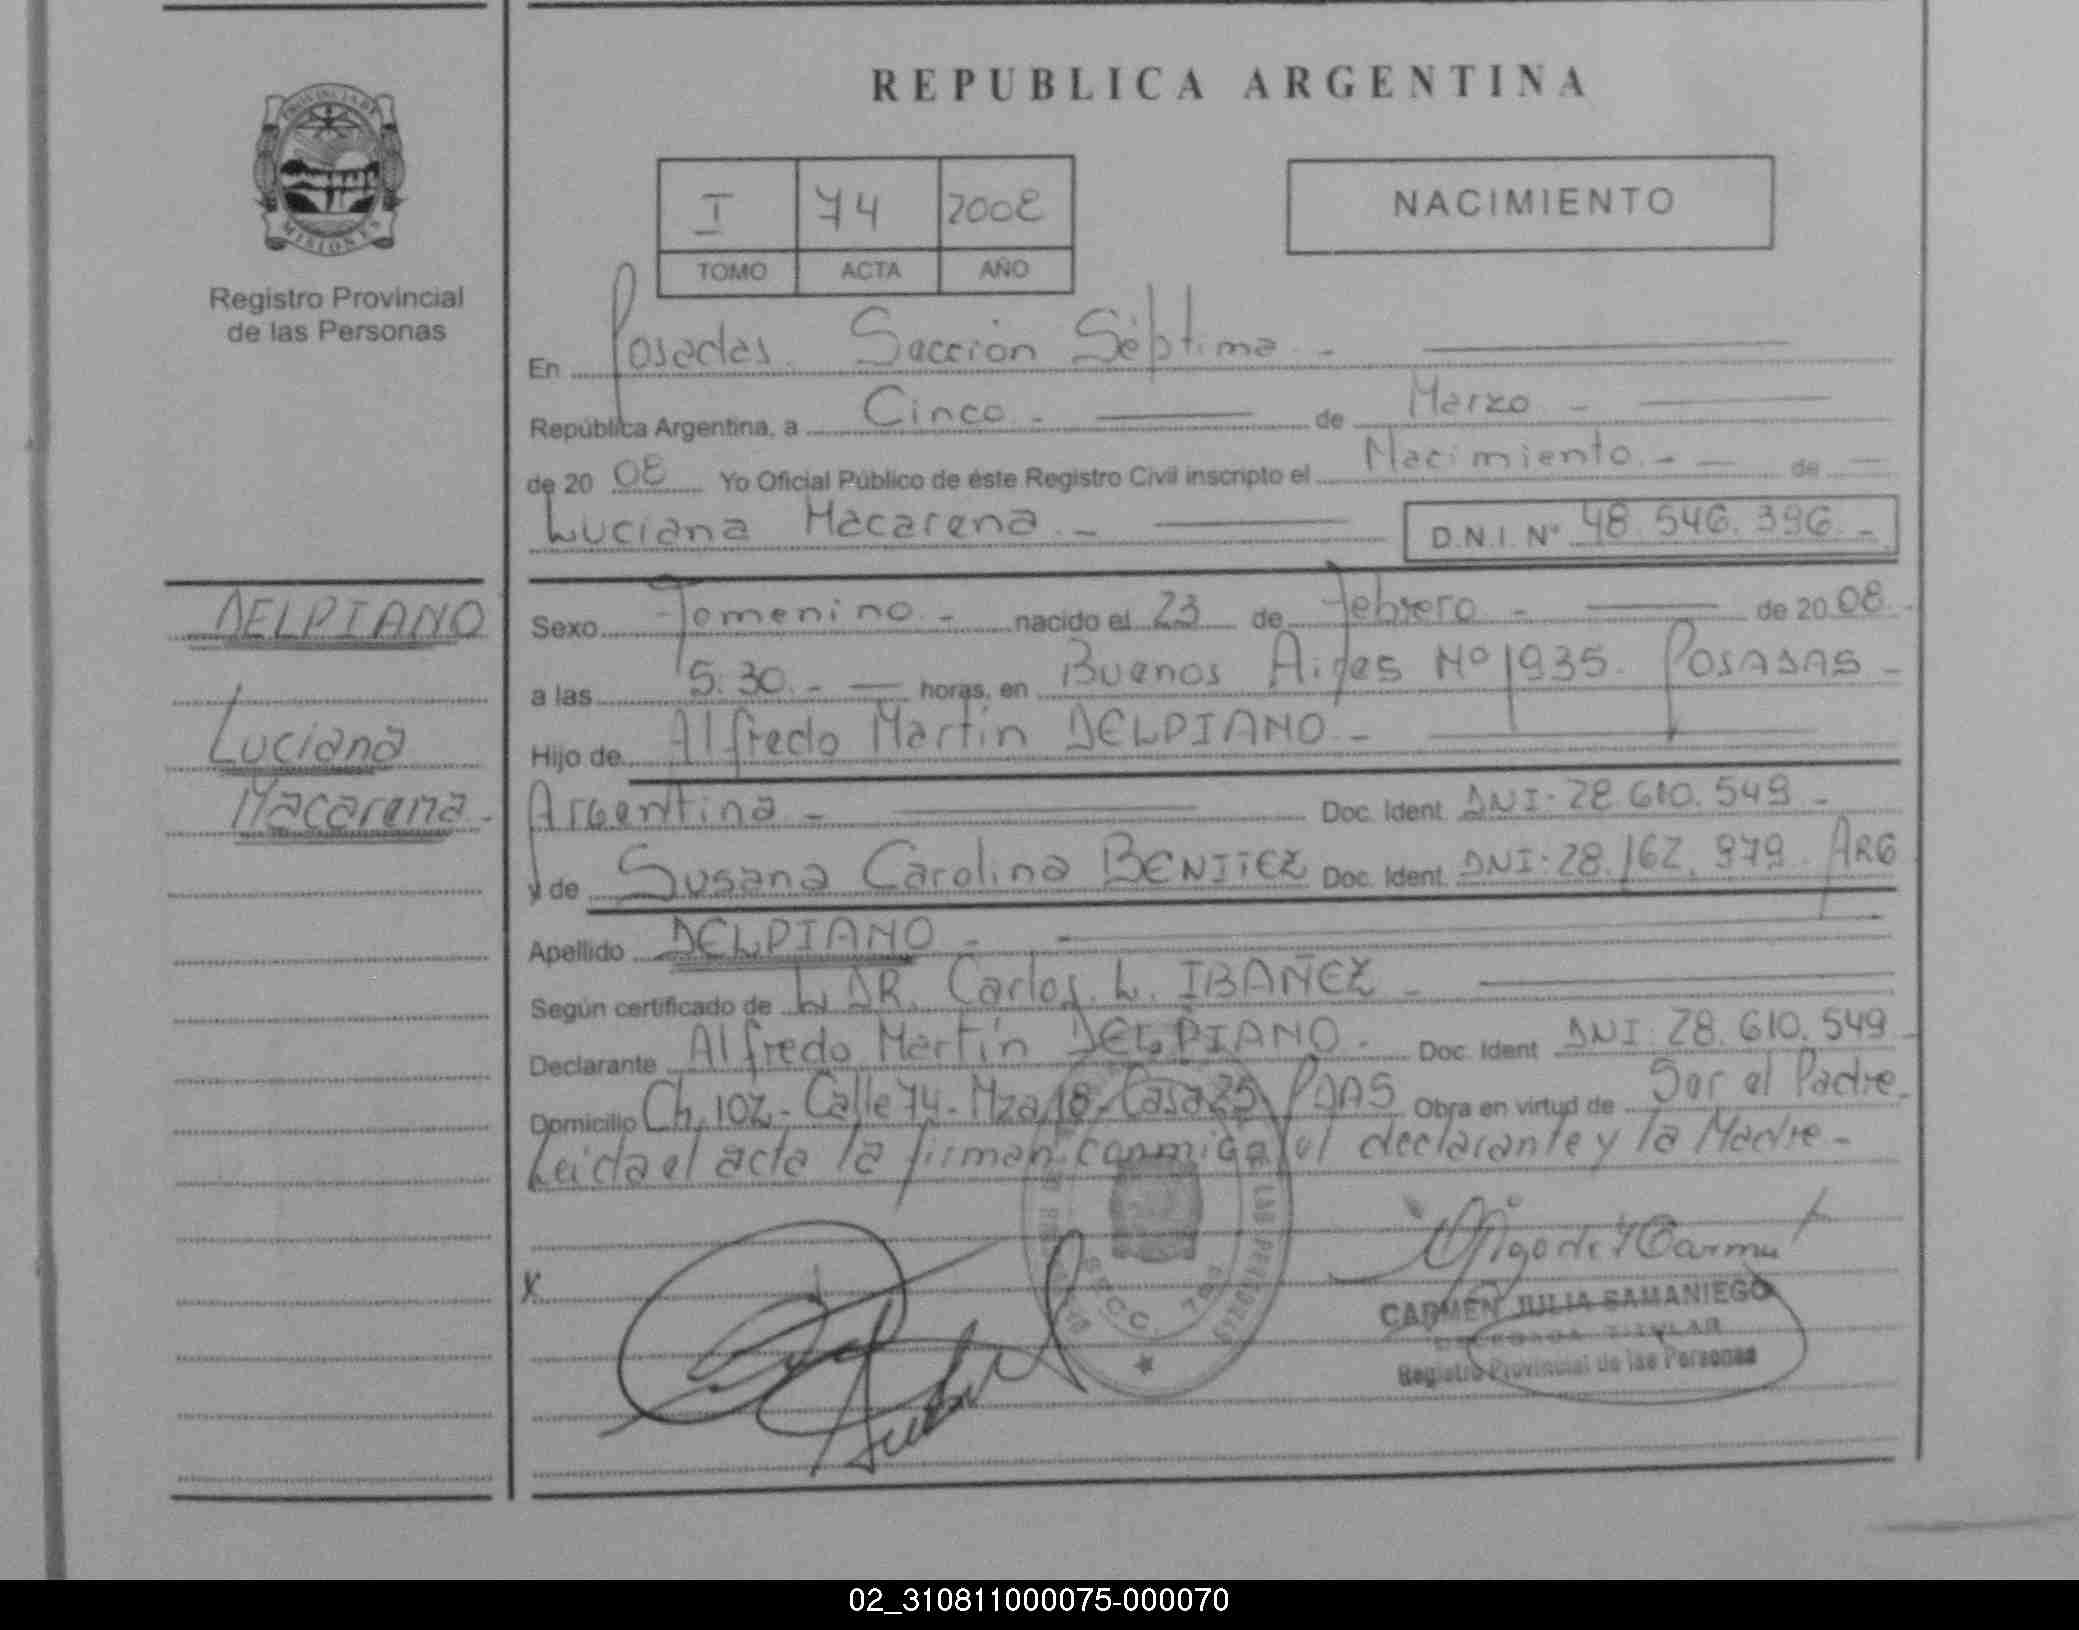 REPUBLICA ARGENTINA
PROVINCIA DE
MISIONES
Registro Provincial
de las Personas
I 74 2008
TOMO ACTA AÑO
NACIMIENTO
En Posadas. Sección Séptima.-
República Argentina, a Cinco.- de Marzo -
de 2008 Yo Oficial Público de éste Registro Civil inscripto el Nacimiento.- - de -
Luciana Macarena.- D.N.I. Nº 48.546.396.-
DELPIANO
Luciana
Macarena.-
Sexo Femenino.- nacido el 23 de Febrero - de 2008.-
a las 5.30.- - horas, en Buenos Aires Nº 1935. POSADAS -
Hijo de Alfredo Martín DELPIANO.-
Argentina - Doc. Ident. DNI: 28.610.549 -
y de Susana Carolina BENITEZ Doc. Ident. DNI: 28.162.979. ARG
Apellido DELPIANO -
Según certificado de L DR. Carlos. L. IBAÑEZ -
Declarante Alfredo Martín DELPIANO. Doc. Ident DNI: 28.610.549 -
Domicilio Ch. 102- Calle 74- Mza 18- Casa 25 PDAS Obra en virtud de Ser el Padre.
Leida el acta la firman conmigo el declarante y la Madre -
X
SECC. 7ma
LAS PERSONAS
CARMEN JULIA SAMANIEGO
DELEGADA TITULAR
Registro Provincial de las Personas
02_310811000075-000070